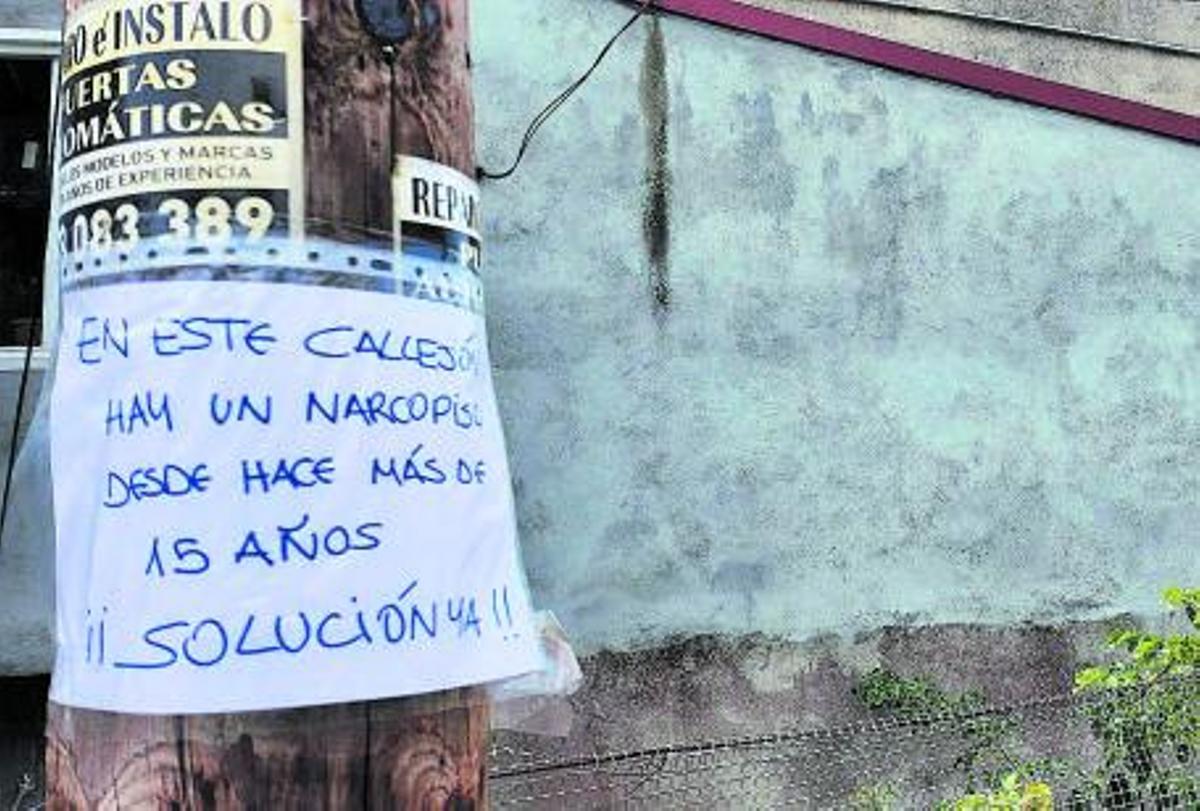 é INSTALO
UERTAS
OMÁTICAS
MODELOS Y MARCAS
DE EXPERIENCIA
083 389
REP
EN ESTE CALLEJÓN
HAY UN NARCOPISO
DESDE HACE MÁS DE
15 AÑOS
¡¡SOLUCIÓN YA!!